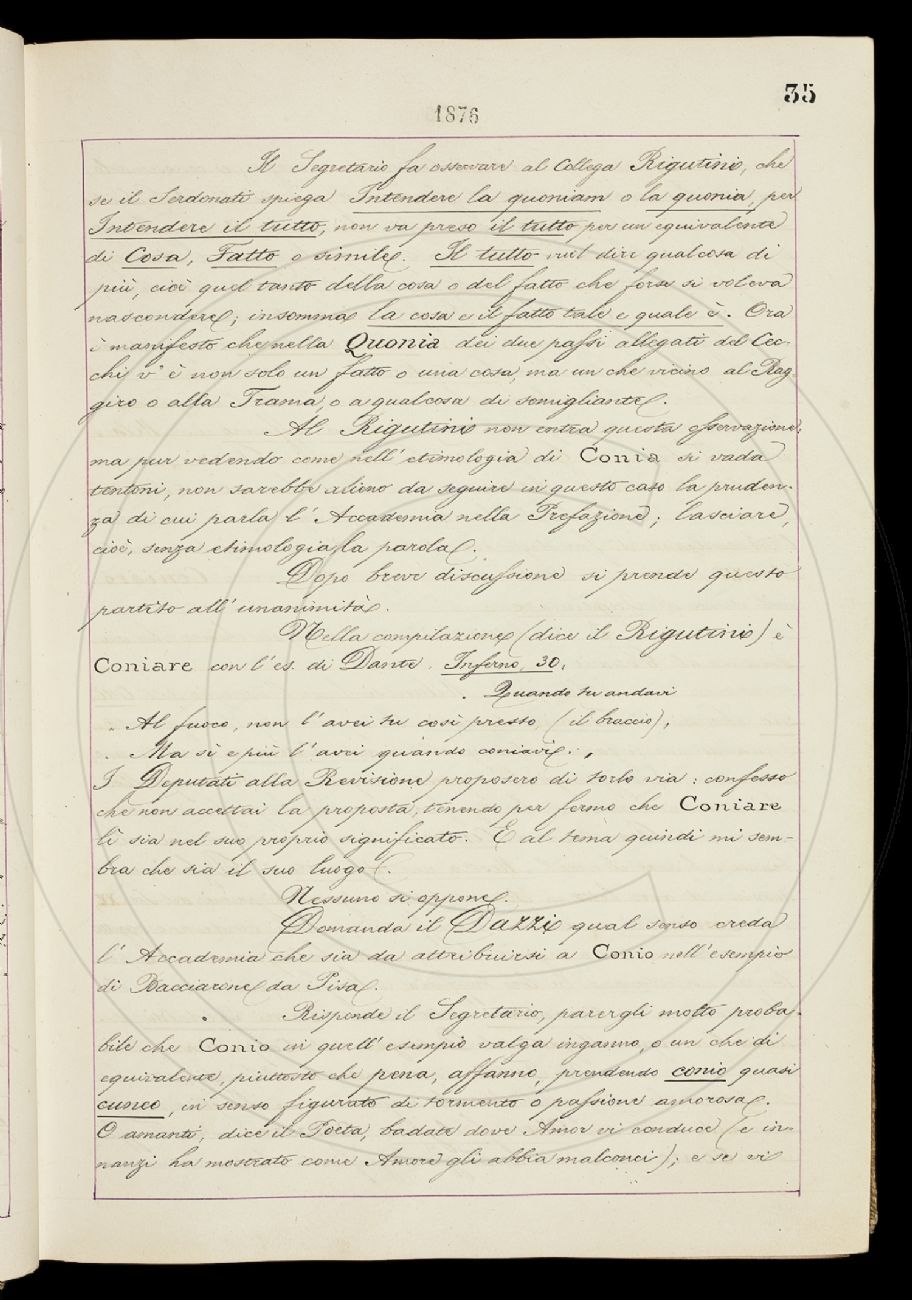 35
1876
Il Segretario fa osservare al Collega Rigutini, che
se il Serdonati spiega Intendere la quoniam o la quonia, per
Intendere il tutto, non va preso il tutto, per un equivalente
di Cosa, Fatto o simile. Il tutto vuol dire qualcosa di
più, cioè quel tanto della cosa o del fatto che forse si voleva
nascondere; insomma la cosa e il fatto tale e quale è. Ora
è manifesto che nella Quonia dei due passi allegati del Cec-
chi v'è non solo un fatto o una cosa, ma un che vicino al Rag-
giro o alla Trama, o a qualcosa di somigliante.
Al Rigutini non entra questa osservazione,
ma pur vedendo come nell'etimologia di Conia si vada
tentoni, non sarebbe alieno da seguire in questo caso la pruden-
za di cui parla l'Accademia nella Prefazione; lasciare,
cioè, senza etimologia la parola.
Dopo breve discussione si prende questo
partito all'unanimità.
Nella compilazione (dice il Rigutini) è
Coniare con l'es. di Dante. Inferno, 30.
Quando tu andavi
Al fuoco, non l'avei tu così presto (il braccio),
Ma sì e più l'avei quando coniavi.
I Deputati alla Revisione proposero di torlo via: confesso
che non accettai la proposta, tenendo per fermo che Coniare
lì sia nel suo proprio significato. E al tema quindi mi sem-
bra che sia il suo luogo.
Nessuno si oppone.
Domanda il Dazzi qual senso creda
l'Accademia che sia da attribuirsi a Conio nell'esempio
di Bacciarone da Pisa.
Risponde il Segretario, parergli molto proba-
bile che Conio in quell'esempio valga inganno, o un che di
equivalente, piuttosto che pena, affanno, prendendo conio quasi
cuneo, in senso figurato di tormento o passione amorosa.
O amanti, dice il Poeta, badate dove Amor vi conduce (e in-
nanzi ha mostrato come Amore gli abbia malconci); e se vi